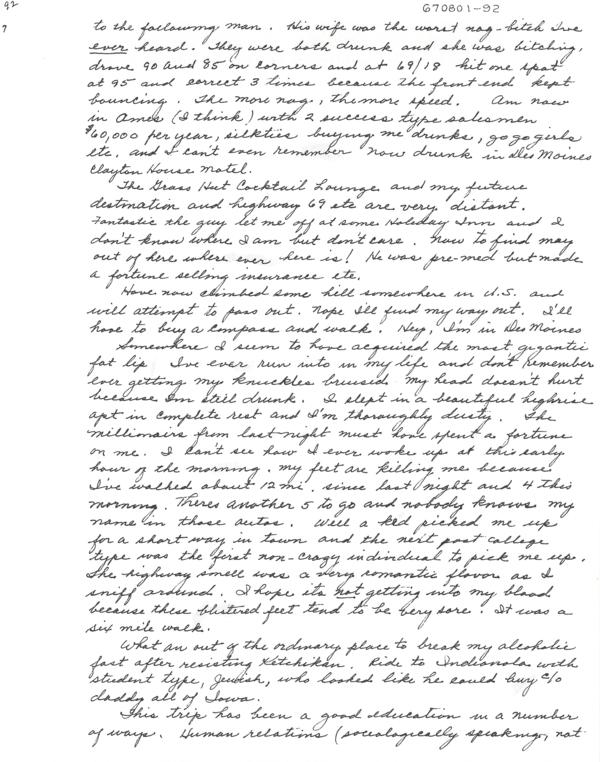 92
670801-92
7
to the following man. His wife was the worst nag-bitch I've
ever heard. They were both drunk and she was bitching,
drove 90 and 85 on corners and at 69/18 hit one spot
at 95 and correct 3 times because the front end kept
bouncing. The more nag, the more speed. Am now
in Ames (I think) with 2 success type salesmen
$60,000 per year, silkties buying me drinks, go go girls
etc. and I can't even remember now drunk in Des Moines
Clayton House Motel.
The Grass Hut Cocktail Lounge and my future
destination and highway 69 etc are very distant.
Fantastic the guy let me off at some Holiday Inn and I
don't know where I am but don't care. Now to find may
out of here where ever here is! He was pre-med but made
a fortune selling insurance etc.
Have now climbed some hill somewhere in U.S. and
will attempt to pass out. Nope I'll find my way out. I'll
have to buy a compass and walk. Hey, I'm in Des Moines
Somewhere I seem to have acquired the most gigantic
fat lip I've ever run into in my life and don't remember
ever getting my knuckles bruised my head doesn't hurt
because I'm still drunk. I slept in a beautiful highrise
apt in complete rest and I'm thoroughly dusty. The
millionairs from last night must have spent a fortune
on me. I can't see how I ever woke up at this early
hour of the morning. my feet are killing me because
I've walked about 12 mi. since last night and 4 this
morning. Theres another 5 to go and nobody knows my
name in those autos. Well a kid picked me up
for a short way in town and the next post college
type was the first non-crazy individual to pick me up.
The highway smell was a very romantic flavor as I
sniff around. I hope its not getting into my blood
because these blistered feet tend to be very sore. It was a
six mile walk.
What an out of the ordinary place to break my alcoholic
fast after resisting Ketchikan. Ride to Indianola with
student type, Jewish, who looked like he could buy c/o
daddy all of Iowa.
This trip has been a good education in a number
of ways. Human relations (sociologically speaking, not